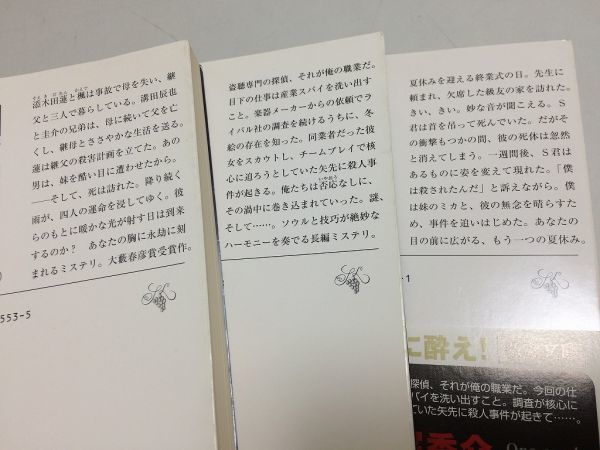 添木田蓮と楓は事故で母を失い、継
父と三人で暮らしている。溝田辰也
と圭介の兄弟は、母に続いて父を亡
くし、継母とささやかな生活を送る。
蓮は継父の殺害計画を立てた。あの
男は、妹を酷い目に遭わせたから。
――そして、死は訪れた。降り続く
雨が、四人の運命を浸してゆく。彼
らのもとに暖かな光が射す日は到来
するのか？ あなたの胸に永劫に刻
まれるミステリ。大藪春彦賞受賞作。
553-5
盗聴専門の探偵、それが俺の職業だ。
目下の仕事は産業スパイを洗い出す
こと。楽器メーカーからの依頼でラ
イバル社の調査を続けるうちに、冬
絵の存在を知った。同業者だった彼
女をスカウトし、チームプレイで核
心に迫ろうとしていた矢先に殺人事
件が起きる。俺たちは否応なしに、
その渦中に巻き込まれていった。謎、
そして……。ソウルと技巧が絶妙な
ハーモニーを奏でる長編ミステリ。
夏休みを迎える終業式の日。先生に
頼まれ、欠席した級友の家を訪れた。
きい、きい。妙な音が聞こえる。S
君は首を吊って死んでいた。だがそ
の衝撃もつかの間、彼の死体は忽然
と消えてしまう。一週間後、S君は
あるものに姿を変えて現れた。「僕
は殺されたんだ」と訴えながら。僕
は妹のミカと、彼の無念を晴らすた
め、事件を追いはじめた。あなたの
目の前に広がる、もう一つの夏休み。
-1
に酔え！
探偵、それが俺の職業だ。今回の仕
パイを洗い出すこと。調査が核心に
ていた矢先に殺人事件が起きて……。
秀介